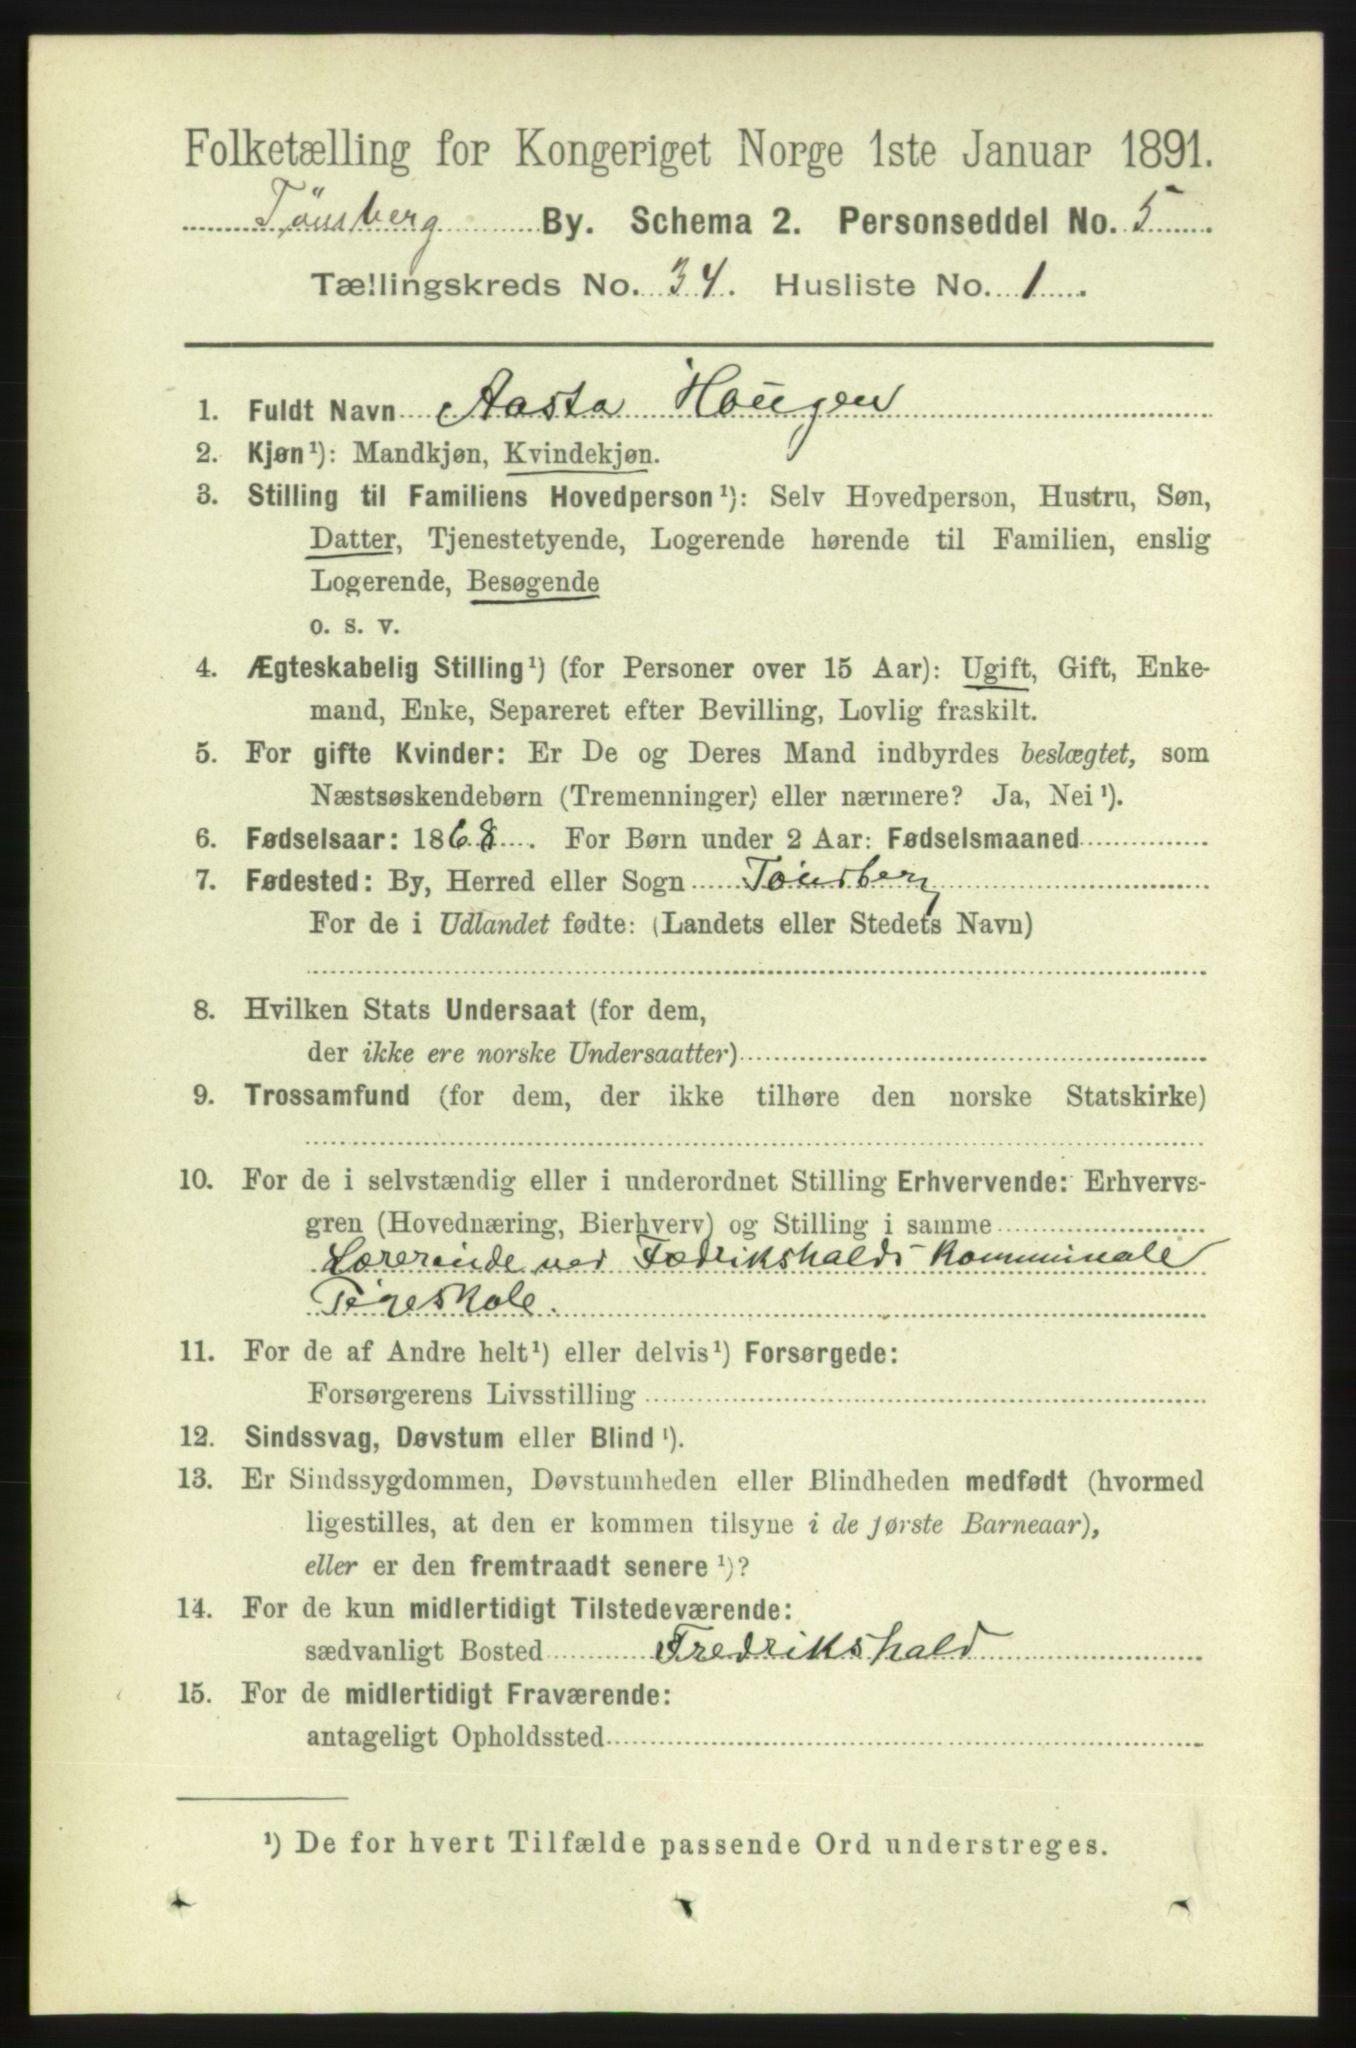 Folketælling for Kongeriget Norge 1ste Januar 1891.
Tönsberg By. Schema 2. Personseddel No. 5
Tællingskreds No. 34. Husliste No. 1
1. Fuldt Navn Aasta Hougen
2. Kjøn¹): Mandkjøn, Kvindekjøn.
3. Stilling til Familiens Hovedperson¹): Selv Hovedperson, Hustru, Søn,
Datter, Tjenestetyende, Logerende hørende til Familien, enslig
Logerende, Besøgende
o. s. v.
4. Ægteskabelig Stilling¹) (for Personer over 15 Aar): Ugift, Gift, Enke-
mand, Enke, Separeret efter Bevilling, Lovlig fraskilt.
5. For gifte Kvinder: Er De og Deres Mand indbyrdes beslægtet, som
Næstsøskendebørn (Tremenninger) eller nærmere? Ja, Nei¹).
6. Fødselsaar: 1868. For Børn under 2 Aar: Fødselsmaaned
7. Fødested: By, Herred eller Sogn Tönsberg
For de i Udlandet fødte: (Landets eller Stedets Navn)
8. Hvilken Stats Undersaat (for dem,
der ikke ere norske Undersaatter)
9. Trossamfund (for dem, der ikke tilhøre den norske Statskirke)
10. For de i selvstændig eller i underordnet Stilling Erhvervende: Erhvervs-
gren (Hovednæring, Bierhverv) og Stilling i samme
Lærerinde ved Fredrikshalds kommunale
Pigeskole.
11. For de af Andre helt¹) eller delvis¹) Forsørgede:
Forsørgerens Livsstilling
12. Sindssvag, Døvstum eller Blind¹).
13. Er Sindssygdommen, Døvstumheden eller Blindheden medfødt (hvormed
ligestilles, at den er kommen tilsyne i de første Barneaar),
eller er den fremtraadt senere¹)?
14. For de kun midlertidigt Tilstedeværende:
sædvanligt Bosted Fredrikshald
15. For de midlertidigt Fraværende:
antageligt Opholdssted
¹) De for hvert Tilfælde passende Ord understreges.